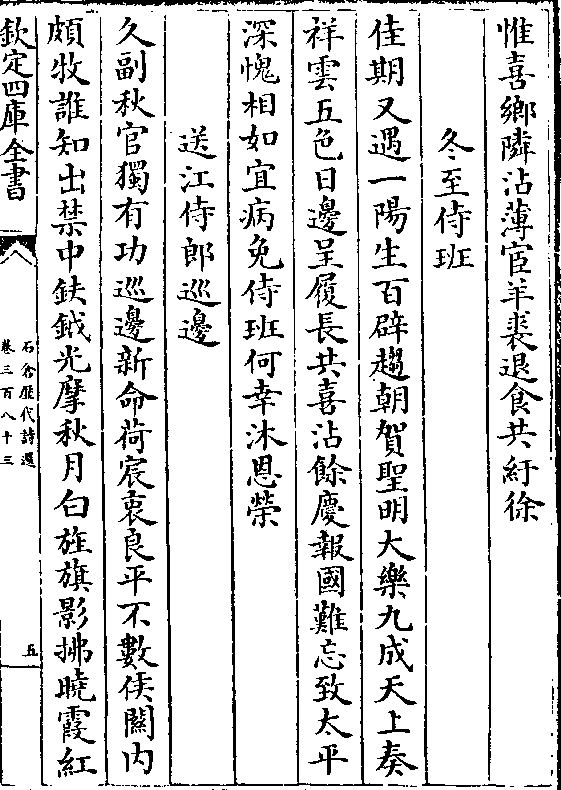 惟喜鄉隣沾薄宦羊裘退食共紆徐
冬至侍班
佳期又遇一陽生百辟趨朝賀聖明大樂九成天上奏
祥雲五色日邊呈履長共喜沾餘慶報國難忘致太平
深愧相如宜病免侍班何幸沐恩榮
送江侍郎巡邊
久副秋官獨有功巡邊新命荷宸衷良平不數侯關内
頗牧誰知出禁中鈇鉞光摩秋月白旌旗影拂曉霞紅
欽定四庫全書
石倉歷代詩選
卷三百八十三
五